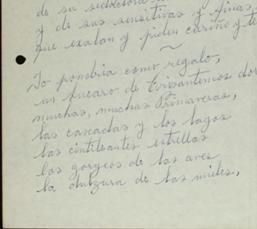 de su seductora
y de sus sensitivas y finas,
que exalan y piden cariño y te
Yo pondria como regalo,
un bucaro de Crisantemos dor
muchas, muchas Primaveras,
las cascadas y los lagos
las cintilantes estrellas
los gorgeos de las aves
la dulzura de las mieles,